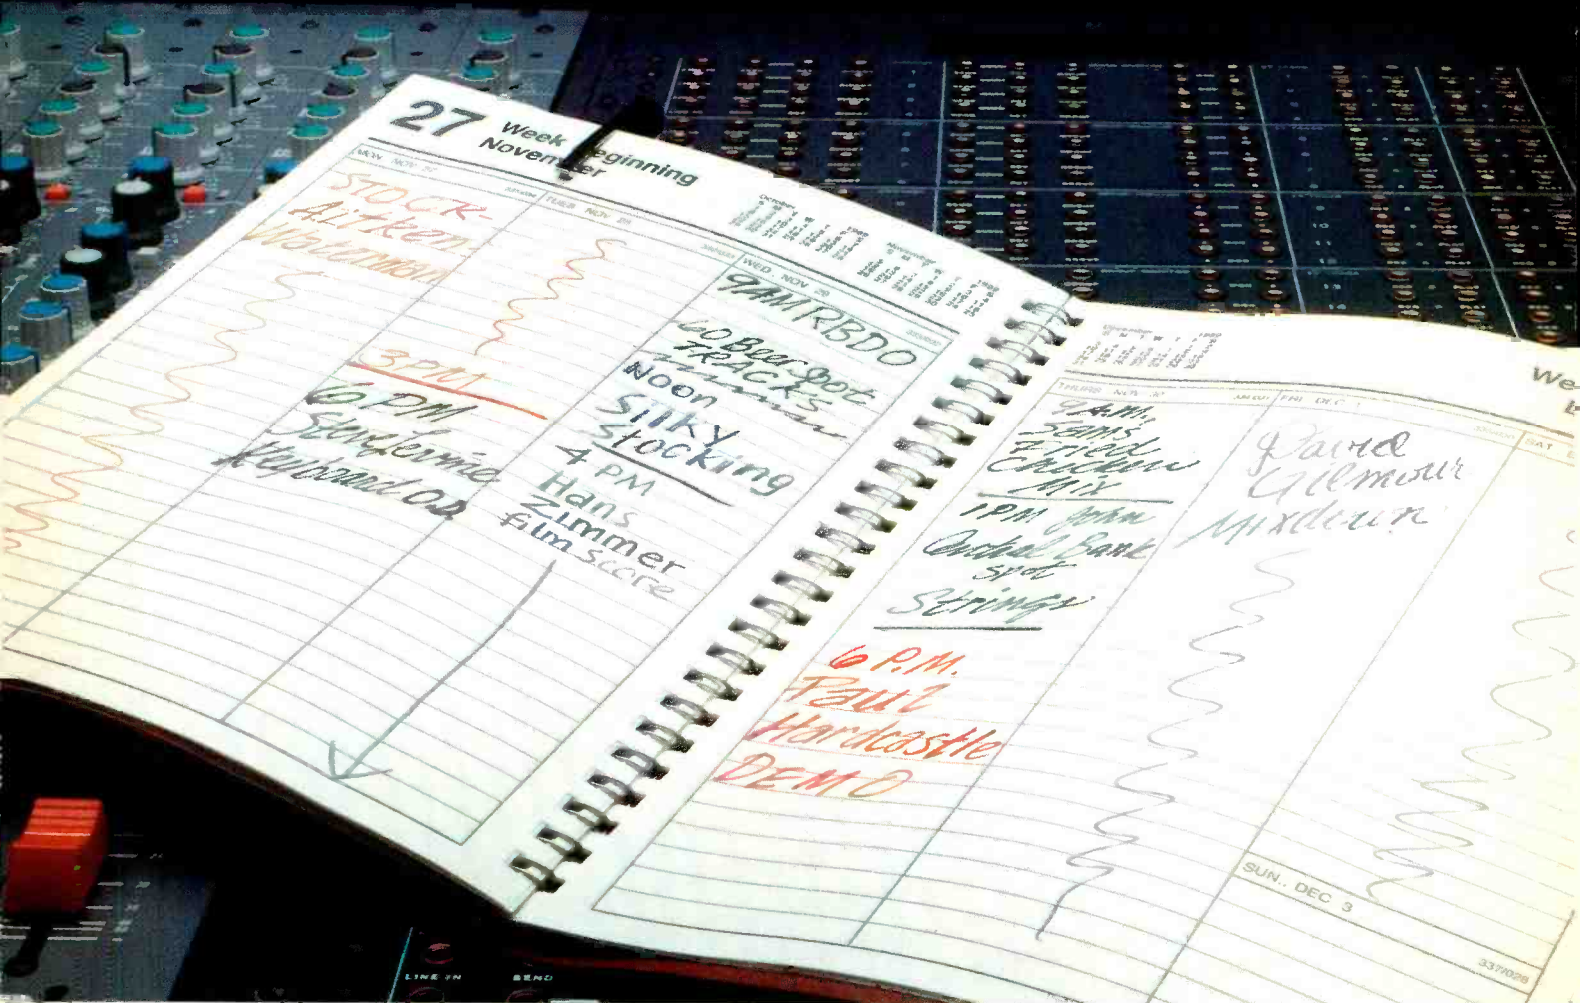 27 Week Beginning
November
MON NOV 27
STOCK-
Aitken
Waterman
TUES NOV 28
3PM
6 PM
Steve Levine
Keyboard O.D.
October
November
WED. NOV. 29
9AM RBDO
60 Beer Spot
TRACKS
NOON
Silky
Stocking
4 PM
Hans
Zimmer
film score
December
THURS NOV 30
9 A.M.
Sam's
Fried
Chicken
Mix
1 PM John
Central Bank
spot
Strings
6 P.M.
Paul
Hardcastle
DEMO
We
FRI DEC 1
David
Gilmour
Mixdown
SAT
SUN.. DEC 3
337/028
LINE IN
SEND